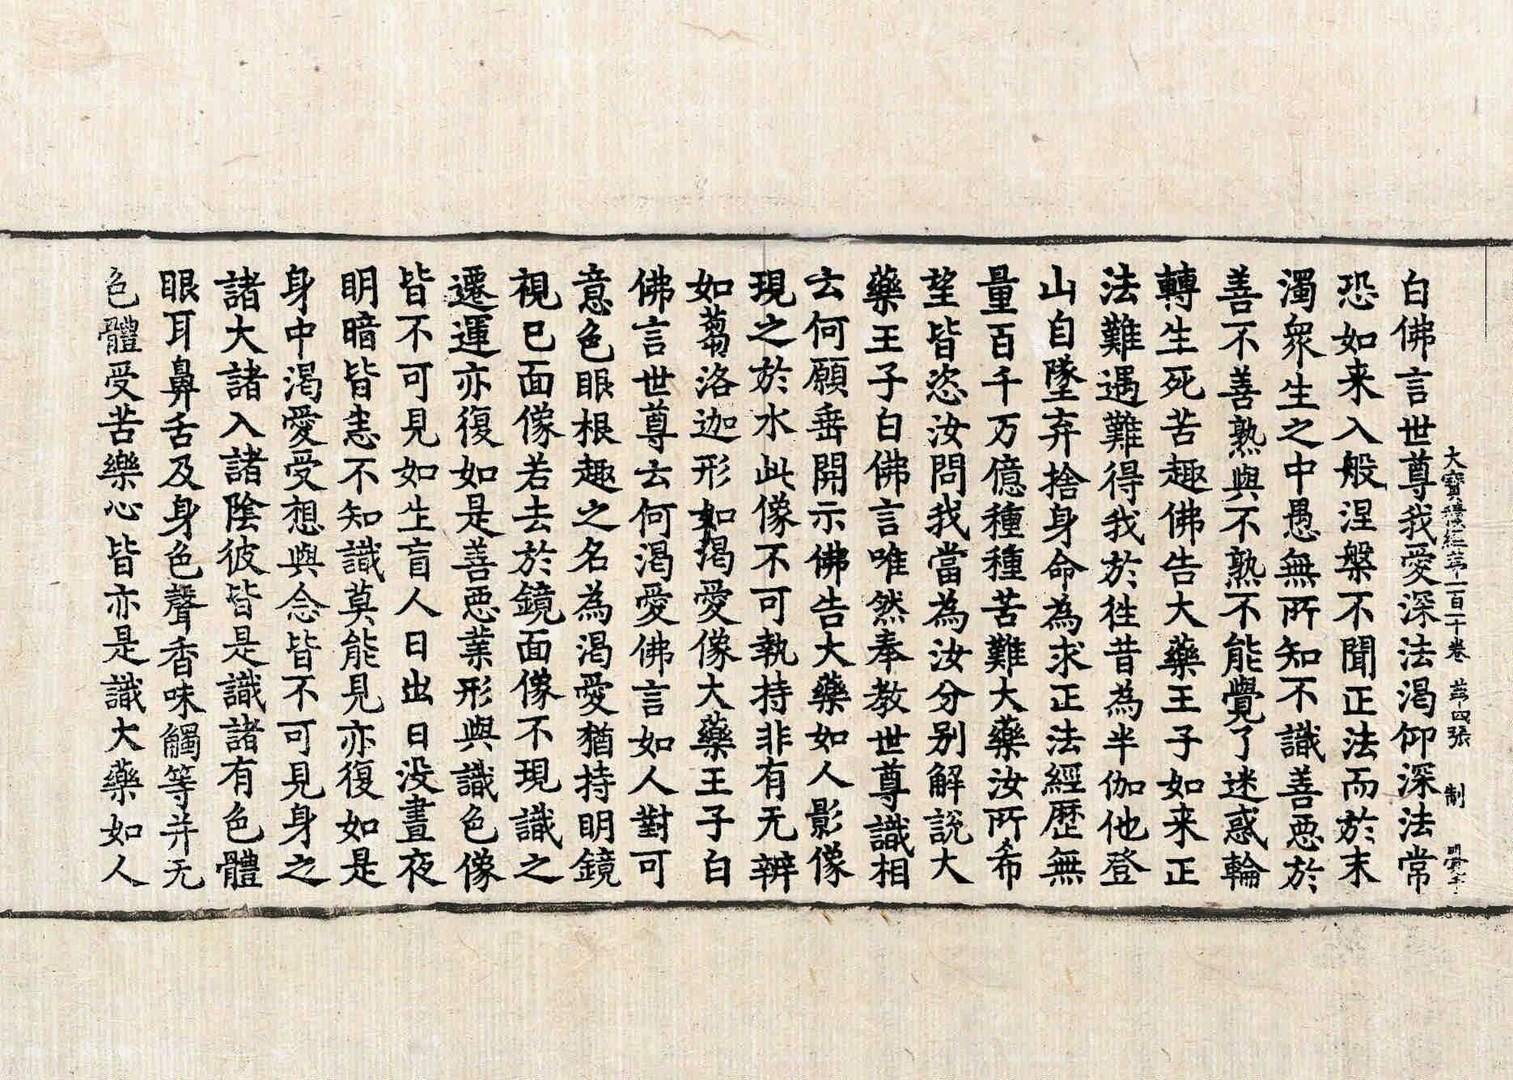 大寶積經第一百一十卷 第四張 制
白佛言世尊我愛深法渴仰深法常
恐如来入般涅槃不聞正法而於末
濁衆生之中愚無所知不識善惡於
善不善熟與不熟不能覺了迷惑輪
轉生死苦趣佛告大藥王子如来正
法難遇難得我於徃昔為半伽他登
山自墜弃捨身命為求正法經歷無
量百千万億種種苦難大藥汝所希
望皆恣汝問我當為汝分別解說大
藥王子白佛言唯然奉教世尊識相
云何願垂開示佛告大藥如人影像
現之於水此像不可執持非有无辨
如蒭洛迦形如渴愛像大藥王子白
佛言世尊云何渴愛佛言如人對可
意色眼根趣之名為渴愛猶持明鏡
視已面像若去於鏡面像不現識之
遷運亦復如是善惡業形與識色像
皆不可見如生盲人日出日没晝夜
明暗皆悉不知識莫能見亦復如是
身中渴愛受想與念皆不可見身之
諸大諸入諸陰彼皆是識諸有色體
眼耳鼻舌及身色聲香味觸等并无
色體受苦樂心皆亦是識大藥如人